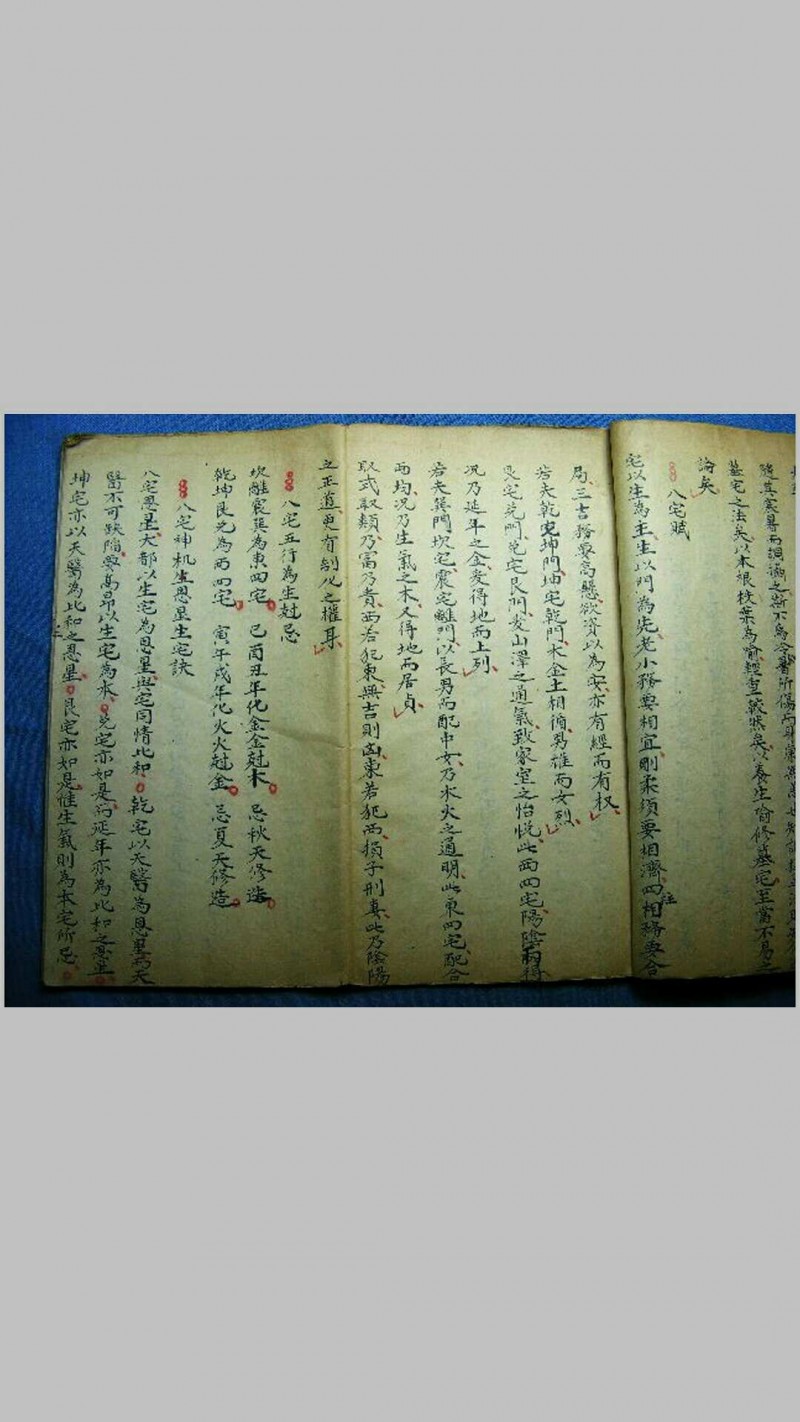 墓宅之法矣以木根枝葉為喻輕重較然矣以養生喻修墓宅至當不易之
論矣
八宅賦
宅以生為主生以門為先老小務要相宜剛柔須要相濟四柱務要合
局三吉務要高懸欲資以為安亦有經而有权
若夫乾宅坤門坤宅乾門木金土相循男雄而女烈
艮宅兌門兌宅艮門爰山澤之通氣致家室之怡悅此西四宅陽陰兩得
况乃延年之金爰得地而上列
若夫巽門坎宅震宅離門以長男而配中女乃木火之通明此東四宅配合
而均况乃生氣之木又得地而居貞
取式取類乃富乃貴西若犯東無吉則凶東若犯西損子刑妻此乃陰陽
之正道更有制化之權耳
八宅五行為生尅忌
坎離震巽為東四宅 巳酉丑年化金金尅木 忌秋天修造
乾坤艮兌為西四宅 寅午戌年化火火尅金 忌夏天修造
八宅神机生恩星生宅訣
八宅恩星大都以生宅為恩星與宅同情比和乾宅以天醫為恩星天
醫不可缺陷要高昂以生宅為本兌宅亦如是延年亦為比和之恩星
坤宅亦以天醫為比和之恩星艮宅亦如是惟生氣則為本宅所忌